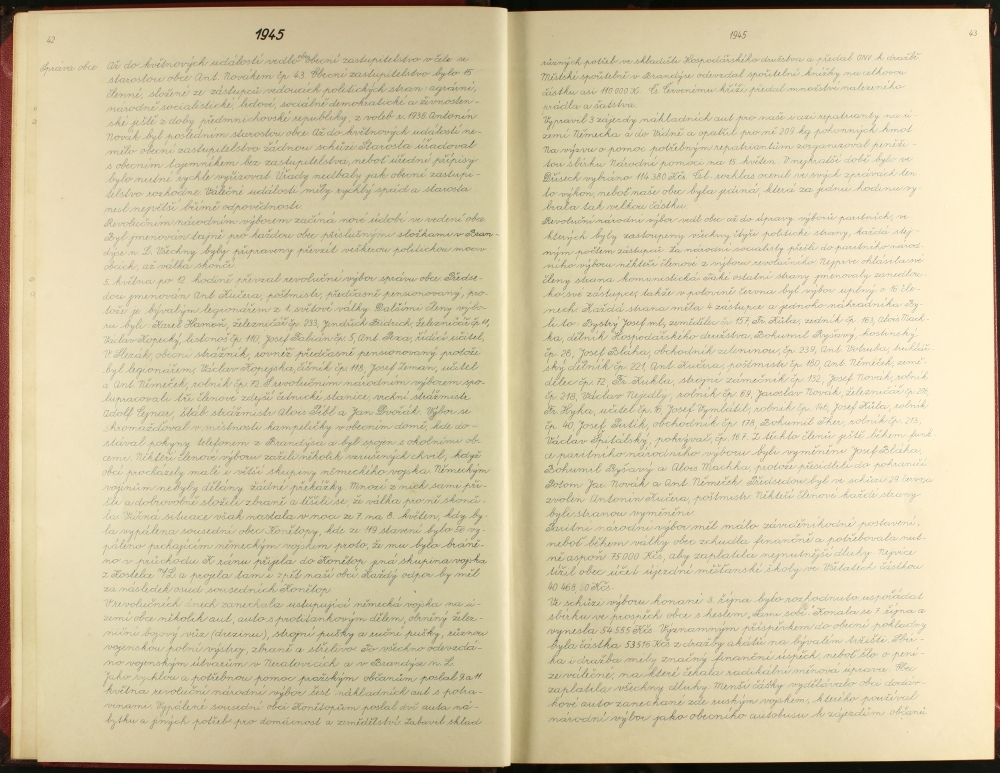 42
1945
Správa obce
Až do květnových událostí vedlo obec obecní zastupitelstvo v čele se
starostou obce Ant. Novákem čp. 43. Obecní zastupitelstvo bylo 15
členné, složené ze zástupců vedoucích politických stran: agrární,
národně socialistické, lidové, sociálně demokratické a živnosten-
ské ještě z doby předmnichovské republiky, z voleb v r. 1938 Antonín
Novák byl posledním starostou obce. Až do květnových událostí ne-
mělo obecní zastupitelstvo žádnou schůzi. Starosta úřadoval
s obecním tajemníkem bez zastupitelstva, neboť úřední přípisy
bylo nutné rychle vyřizovat. Úřady nedbaly jak obecní zastupi-
telstvo rozhodne. Válečné události měly rychlý spád a starosta
nesl největší břímě odpovědnosti.
Revolučním národním výborem začíná nové údobí ve vedení obce.
Byl jmenován tajně pro každou obec příslušným složkami v Bran-
dýse n. L. Všechny byly připraveny převzít veškerou politickou moc v
obcích, až válka skončí.
5. května po 12. hodině převzal revoluční výbor správu obce. Předse-
dou jmenován Ant. Kučera, poštmistr, předčasně penzionovaný, pro-
tože je bývalým legionářem z 1. světové války. Dalšími členy výbo-
ru byli: Karel Hamoň, železničář čp. 233, Jindřich Fidrich, železničář čp. 11,
Václav Kopecký, listonoš čp. 110, Josef Fabián čp. 5, Ant. Pexa, řídící učitel,
V. Slezák, obecní strážník, rovněž předčasně pensionovaný protože
byl legionářem, Václav Kopejska, číšník čp. 118, Josef Zeman, učitel
a Ant. Němeček, rolník čp. 72. S revolučním národním výborem spo-
lupracovali tři členové zdejší četnické stanice, vrchní strážmistr
Adolf Cejnar, štáb. strážmistr Alois Pebl a Jan Dvořák. Výbor se
shromažďoval v místnosti kampeličky v obecním domě, kde do-
stával pokyny telefonem z Brandýsa a byl spojen s okolními ob-
cemi. Někteří členové výboru zažili několik vzrušených chvil, když
obcí procházely malé i větší skupiny německého vojska. Německým
vojínům nebyly dělány žádné překážky. Mnozí z nich sami při-
šli a dobrovolně složili zbraně a těšili se, že válka pro ně skonči-
la. Vážná situace však nastala v noci ze 7. na 8. květen, kdy by-
la vypálena sousední obec Konětopy, kde ze 149 stavení bylo 60 vy-
páleno prchajícím německým vojskem proto, že mu bylo bráně-
no v průchodu. K ránu přijela do Konětop jiná skupina vojska
z Kostelce n/L. a projela tam i zpět naší obcí. Každý odpor by měl
za následek osud sousedních Konětop.
V revolučních dnech zanechala ustupující německá vojska na ú-
zemí obce několik aut, auto s protitankovým dělem, obrněný želez-
niční bojový vůz (drezinu), strojní pušky a ruční pušky, různou
vojenskou polní výstroj, zbraně a střelivo. To všechno odevzdá-
no vojenským útvarům v Neratovicích a v Brandýse n. L.
Jako rychlou a potřebnou pomoc pražským občanům poslal 9. a 11.
května revoluční národní výbor šest nákladních aut s potra-
vinami. Vypálené sousední obci Konětopům poslal dvě auta ná-
bytku a jiných potřeb pro domácnost a zemědělství. Zabavil sklad
1945
43
různých potřeb ve skladišti Hospodářského družstva a předal ONV k dražbě.
Městské spořitelně v Brandýse odevzdal spořitelní knížky na celkovou
částku asi 110.000 K. Čs. Červenému kříži předal množství nalezeného
prádla a šatstva.
Vypravil 3 zájezdy nákladních aut pro naše i cizí repatrianty na ú-
zemí Německa a do Vídně a opatřil pro ně 209 kg pohonných hmot.
Na výzvu o pomoc potřebným repatriantům zorganizoval peněži-
tou sbírku Národní pomoci na 15. květen. V nejkratší době bylo ve
Dřísech vybráno 114.380 Kčs. Čsl. rozhlas ocenil ve svých zprávách ten-
to výkon, neboť naše obec byla jediná, která za jednu hodinu vy-
brala tak velkou částku.
Revoluční národní výbor vedl obec až do úpravy výborů paritních, ve
kterých byly zastoupeny všechny čtyři politické strany, každá stej-
ným počtem zástupců. Za národní socialisty přešli do paritního národ-
ního výboru někteří členové z výboru revolučního. Nejprve ohlásila své
členy strana komunistická. Také ostatní strany jmenovaly zanedlou-
ho své zástupce, takže v polovině června byl výbor úplný o 16 čle-
nech. Každá strana měla 4 zástupce a jednoho náhradníka. By-
li to: Bystrý Josef ml., zemědělec čp. 157, Fr. Kůla, zedník čp. 163, Alois Mach-
ka, dělník Hospodářského družstva, Bohumil Ryšavý, hostinský
čp. 28, Josef Bláha, obchodník zeleninou, čp. 239, Ant. Votruba,
dělník čp. 221, Ant. Kučera, poštmistr čp. 150, Ant. Němeček, země-
dělec čp. 72, Fr. Kukla, strojní zámečník čp. 132, Josef Novák, rolník
čp. 218, Václav Nejedlý, rolník čp. 69, Jaroslav Novák, železničář čp. 278,
Fr. Hyka, učitel čp. 6, Josef Vymlátil, rolník čp. 145, Josef Kůla, rolník
čp. 40, Josef Gutík, obchodník čp. 178, Bohumil Sher, rolník čp. 213,
Václav Špitálský, pokrývač, čp. 167. Z těchto členů ještě během funk-
ce paritního národního výboru byli vyměněni: Josef Bláha,
Bohumil Ryšavý a Alois Machka, protože přesídlili do pohraničí.
Potom Jar. Novák a Ant. Němeček. Předsedou byl ve schůzi 29. června
zvolen Antonín Kučera, poštmistr. Někteří členové každé strany
byli stranou vyměněni.
Paritní národní výbor měl málo záviděníhodné postavení,
neboť během války obec zchudla finančně a potřebovala nut-
ně aspoň 75.000 Kčs, aby zaplatila nejnutnější dluhy. Nejvíce
tížil obec účet újezdní měšťanské školy ve Všetatech částkou
40.468,50 Kčs.
Ve schůzi výboru konané 3. října bylo rozhodnuto uspořádat
sbírku ve prospěch obce s heslem „Sami sobě“. Konala se 7. října a
vynesla 54.555 Kčs. Významným příspěvkem do obecní pokladny
byla částka 53.516 Kčs z dražby akátů na bývalém tržišti. Sbír-
ka i dražba měly značný finanční úspěch, neboť šlo o pení-
ze válečné, na které čekala radikální měnová úprava. Obec
zaplatila všechny dluhy. Menší částky vydělávalo obci dodáv-
kové auto zanechané zde ruským vojskem, kterého používal
národní výbor jako obecního autobusu k zájezdům občanů